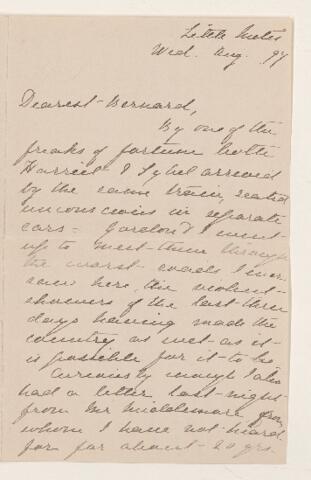 Little Metis
Wed. Aug. 97
Dearest Bernard,
By one of the
freaks of fortune both
Harriet & Sybel arrived
by the same train, seated
unconscious in separate
cars = Gordon & I went
up to meet them through
the worst roads I ever
saw here, the violent
showers of the last three
days having made the
country as wet as it
is possible for it to be
Curiously enough I also
had a letter last night
from Mr Middlemore from
whom I have not heard
for for about 20 yrs.